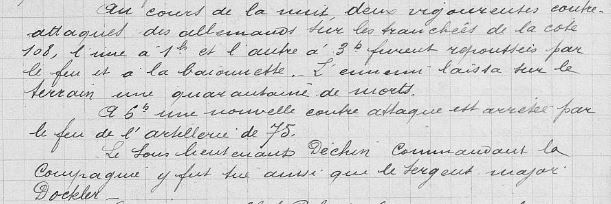 Au cours de la nuit, deux vigoureuses contre-
attaques des allemands sur les tranchées de la cote
108, l'une à 1h et l'autre à 3h furent repoussées par
le feu et à la baïonnette. L'ennemi laissa sur le
terrain une quarantaine de morts.
A 6h une nouvelle contre attaque est arretée par
le feu de l'artillerie de 75.
Le Sous lieutenant Dechin Commandant la
Compagnie y fut tué ainsi que le Sergent major
Dockler -